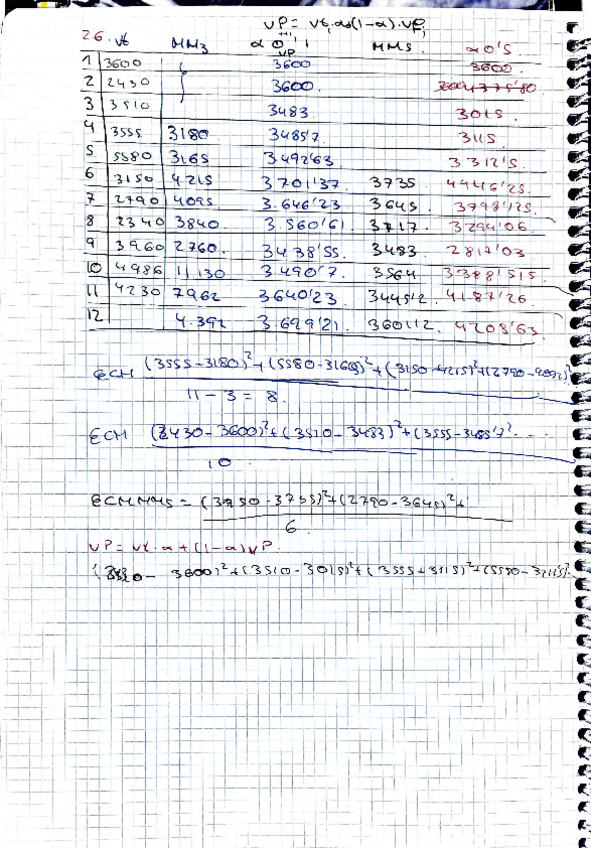 VP = Vt.α+(1-α).VP
26. Vt MM3 α 0'1 MM5 α 0'5
VP
1 3600 3600 3600.
2 2430 3600.
3 3510 3483 3015.
4 3555 3180 3485'7 3115
5 5580 3165 3492'63 3312'5
6 3150 4215 3701'37 3735. 4446'25
7 2790 4095 3.646'23 3645. 3798'125
8 2340 3840. 3.560'61 3717. 3294'06
9 3960 2760. 3438'55. 3483 2817'03
10 4986 11130 3490'7. 3564 3388'515
11 4230 7962 3640'23 3445'2. 4187'26
12 4.392 3.699'21. 3601'2. 4208'63
ECM (3555-3180)²+(5580-3165)²+(3150-4215)²+(2790-4092)²
11-3=8.
ECM (2430-3600)²+(3510-3483)²+(3555-3485'7)²...
10.
ECM MM5 = (3150-3735)²+(2790-3645)²+
6.
VP = Vt.α+(1-α)VP.
- 3600)²+(3510-3015)²+(3555+3115)²+(5580-